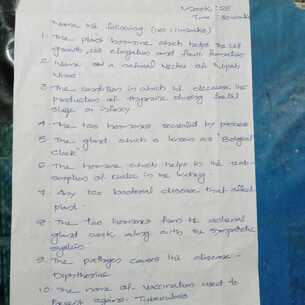 Mark: 
Time: 
Name the following (no 11 marks)
1. The plant hormone which helps the cell
growth, cell elogation and fruit formation
2. Name of a natural vector of Nipah
Virus
3 The condition in which is because the
production of thyroxine during foetal
stage or infancy
4 The two hormones secreated by pancreas
5 The gland which is known as "Bological
clock"
6. The hormone which helps in the reab-
sorption of water in the kidney
7. Any two bacterial disease that affect
plant.
8. The two hormones from the adrenal
gland work along with the sympathetic
system
9. The pathogen causes the disease
Diphtheria
10. The name of Vaccination used to
prevent against Tuberculosis